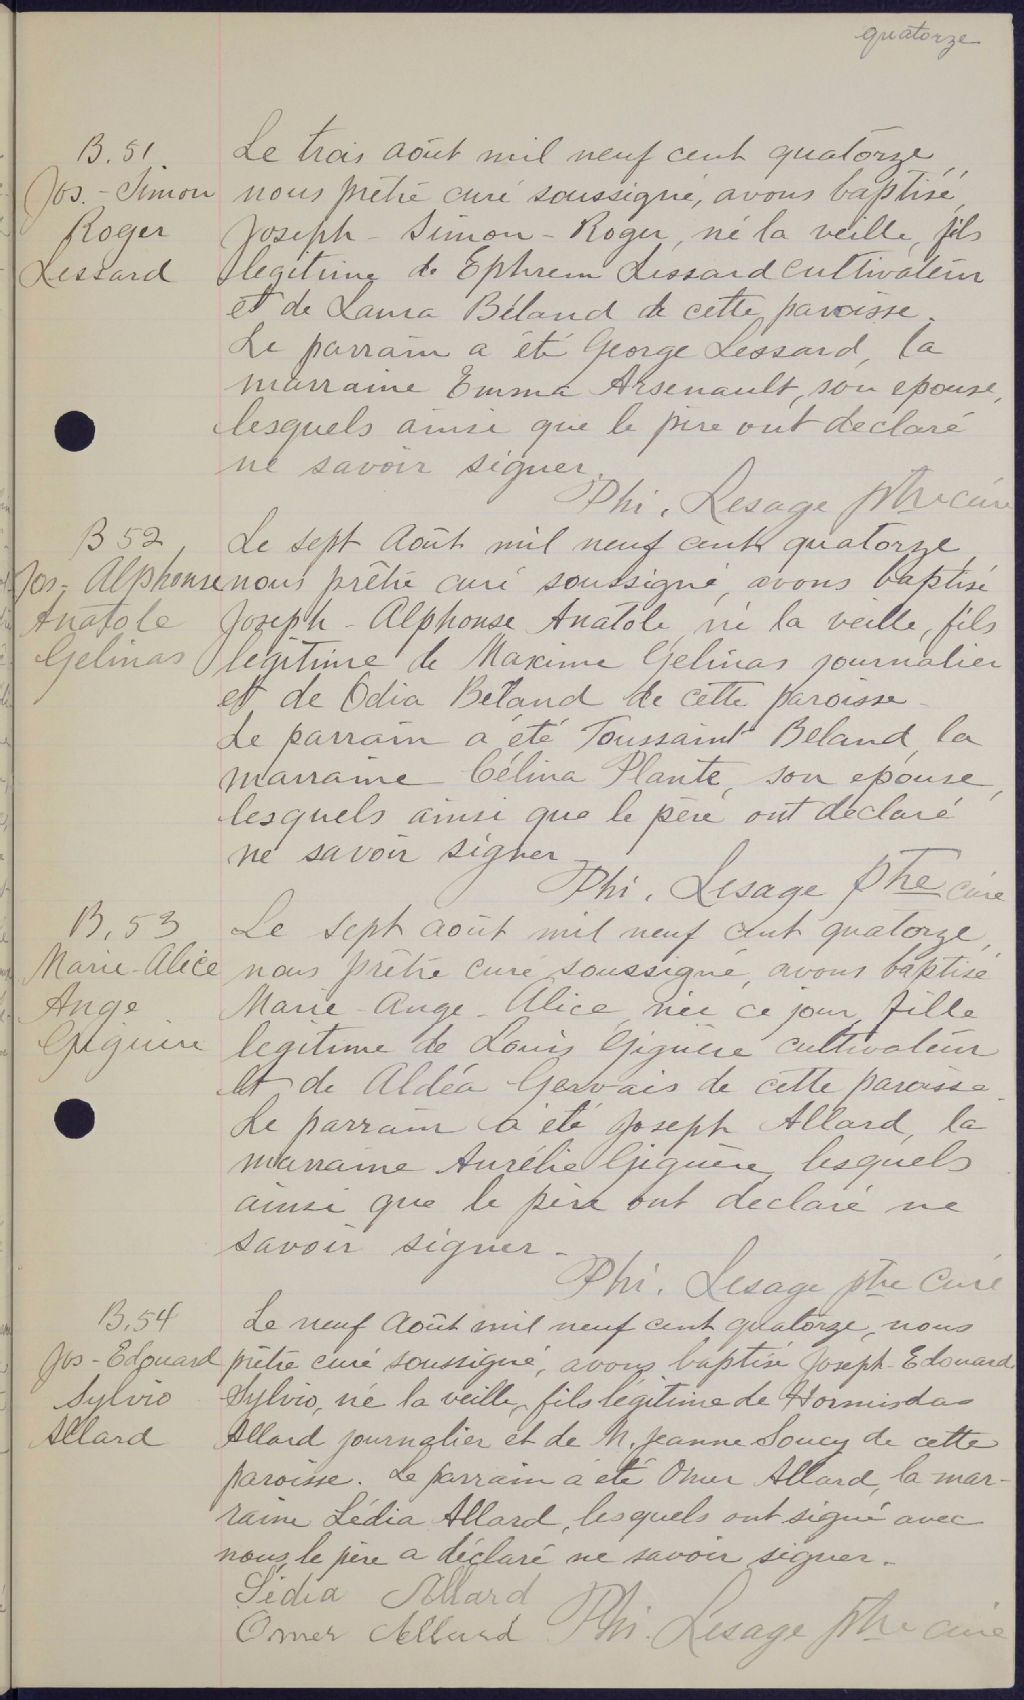 quatorze
B. 51.
Jos. - Simon
Roger
Lessard
Le trois août mil neuf cent quatorze,
nous prêtre curé soussigné, avons baptisé,
Joseph - Simon - Roger, né la veille, fils
légitime de Ephrem Lessard cultivateur
et de Laura Béland de cette paroisse.
Le parrain a été George Lessard, la
marraine Emma Arsenault, son epouse,
lesquels ainsi que le père ont declaré
ne savoir signer.
Phi. Lesage ptre curé
B 52
Jos - Alphonse
Anatole
Gelinas
Le sept Août mil neuf cent quatorze,
nous prêtre curé soussigné, avons baptisé
Joseph - Alphonse Anatole, né la veille, fils
légitime de Maxime Gelinas journalier
et de Odia Béland de cette paroisse -
Le parrain a été Toussaint Beland, la
marraine Célina Plante, son epouse,
lesquels ainsi que le père ont declaré
ne savoir signer -
Phi. Lesage ptre curé
B. 53
Marie - Alice
Ange
Giguère
Le sept août mil neuf cent quatorze,
nous prêtre curé soussigné, avons baptisé
Marie - Ange - Alice, née ce jour, fille
legitime de Louis Giguère cultivateur
et de Aldéa Gervais de cette paroisse.
Le parrain a été Joseph Allard, la
marraine Aurélie Giguère, lesquels
ainsi que le père ont declaré ne
savoir signer -
Phi. Lesage ptre Curé
B. 54
Jos - Edouard
Sylvio
Allard
Le neuf Août mil neuf cent quatorze, nous
prêtre curé soussigné, avons baptisé Joseph - Edouard
Sylvio, né la veille, fils légitime de Hormisdas
Allard journalier et de M. Jeanne Soucy de cette
paroisse. Le parrain a été Omer Allard, la mar-
raine Lédia Allard, lesquels ont signé avec
nous, le père a déclaré ne savoir signer -
Lédia Allard
Omer Allard Phi. Lesage ptre curé